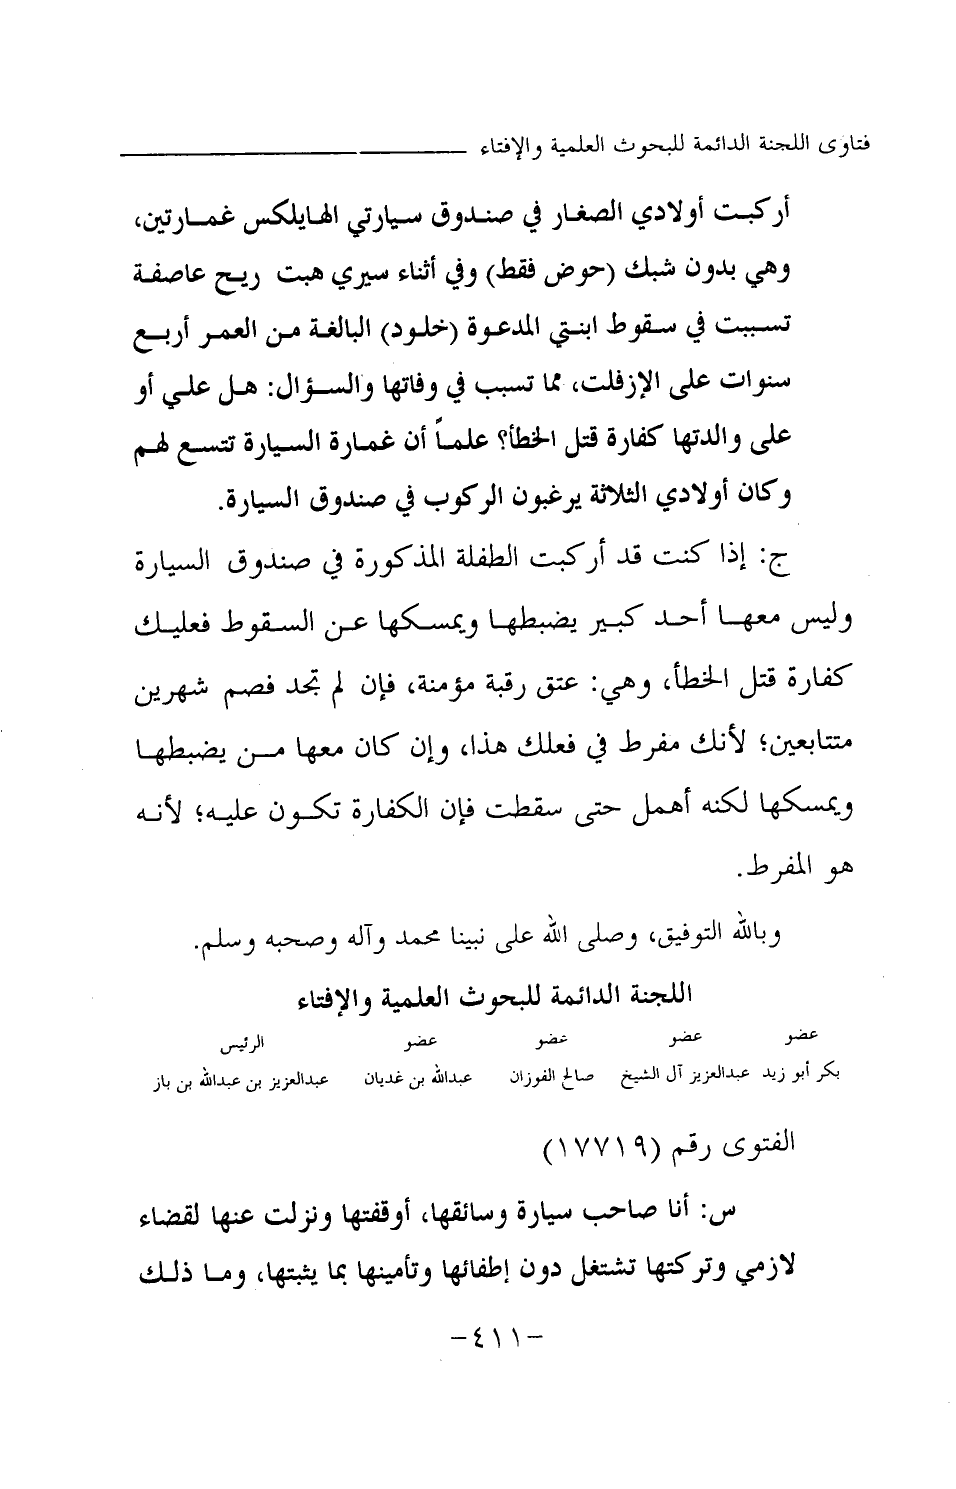 فتاوى اللجنة الدائمة للبحوث العلمية والإفتاء
أركبت أولادي الصغار في صندوق سيارتي الهايلكس غمارتين،
وهي بدون شبك (حوض فقط) وفي أثناء سيري هبت ريح عاصفة
تسببت في سقوط ابنتي المدعوة (خلود) البالغة من العمر أربع
سنوات على الإزفلت، مما تسبب في وفاتها والسؤال: هل علي أو
على والدتها كفارة قتل الخطأ؟ علماً أن غمارة السيارة تتسع لهم
وكان أولادي الثلاثة يرغبون الركوب في صندوق السيارة.
ج: إذا كنت قد أركبت الطفلة المذكورة في صندوق السيارة
وليس معها أحد كبير يضبطها ويمسكها عن السقوط فعليك
كفارة قتل الخطأ، وهي: عتق رقبة مؤمنة، فإن لم تجد فصم شهرين
متتابعين؛ لأنك مفرط في فعلك هذا، وإن كان معها من يضبطها
ويمسكها لكنه أهمل حتى سقطت فإن الكفارة تكون عليه؛ لأنه
هو المفرط.
وبالله التوفيق، وصلى الله على نبينا محمد وآله وصحبه وسلم.
اللجنة الدائمة للبحوث العلمية والإفتاء
عضو عضو عضو عضو الرئيس
بكر أبو زيد عبدالعزيز آل الشيخ صالح الفوزان عبدالله بن غديان عبدالعزيز بن عبدالله بن باز
الفتوى رقم (١٧٧١٩)
س: أنا صاحب سيارة وسائقها، أوقفتها ونزلت عنها لقضاء
لازمي وتركتها تشتغل دون إطفائها وتأمينها بما يثبتها، وما ذلك
-٤١١-